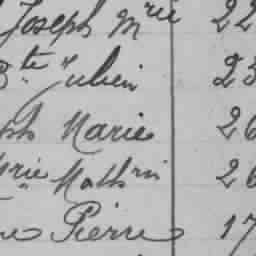 Joseph Mrie 22
Bte Julien 23
ph Marie 26
Mrie Math rin 26
Pierre 17